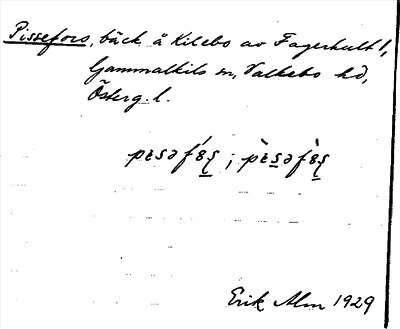 Pissefors, bäck å Kilebo av Fagerhult 1,
Gammalkils sn, Valkebo hd,
Österg. l.
Erik Alm 1929